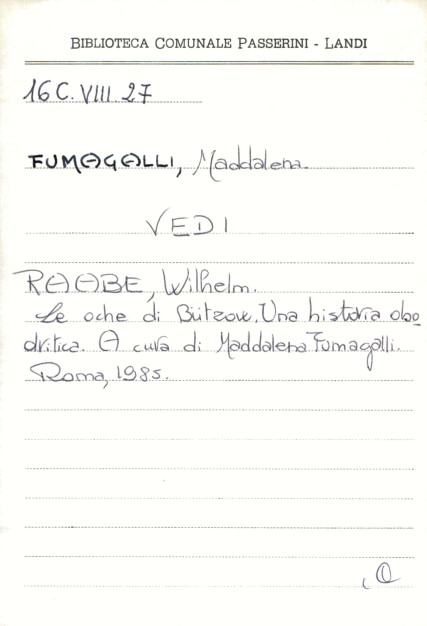 BIBLIOTECA COMUNALE PASSERINI - LANDI
16 C. VIII. 27
FUMAGALLI, Maddalena.
VEDI
RAABE, Wilhelm.
Le oche di Bützow. Una historia obo
dritica. A cura di Maddalena Fumagalli.
Roma, 1985.